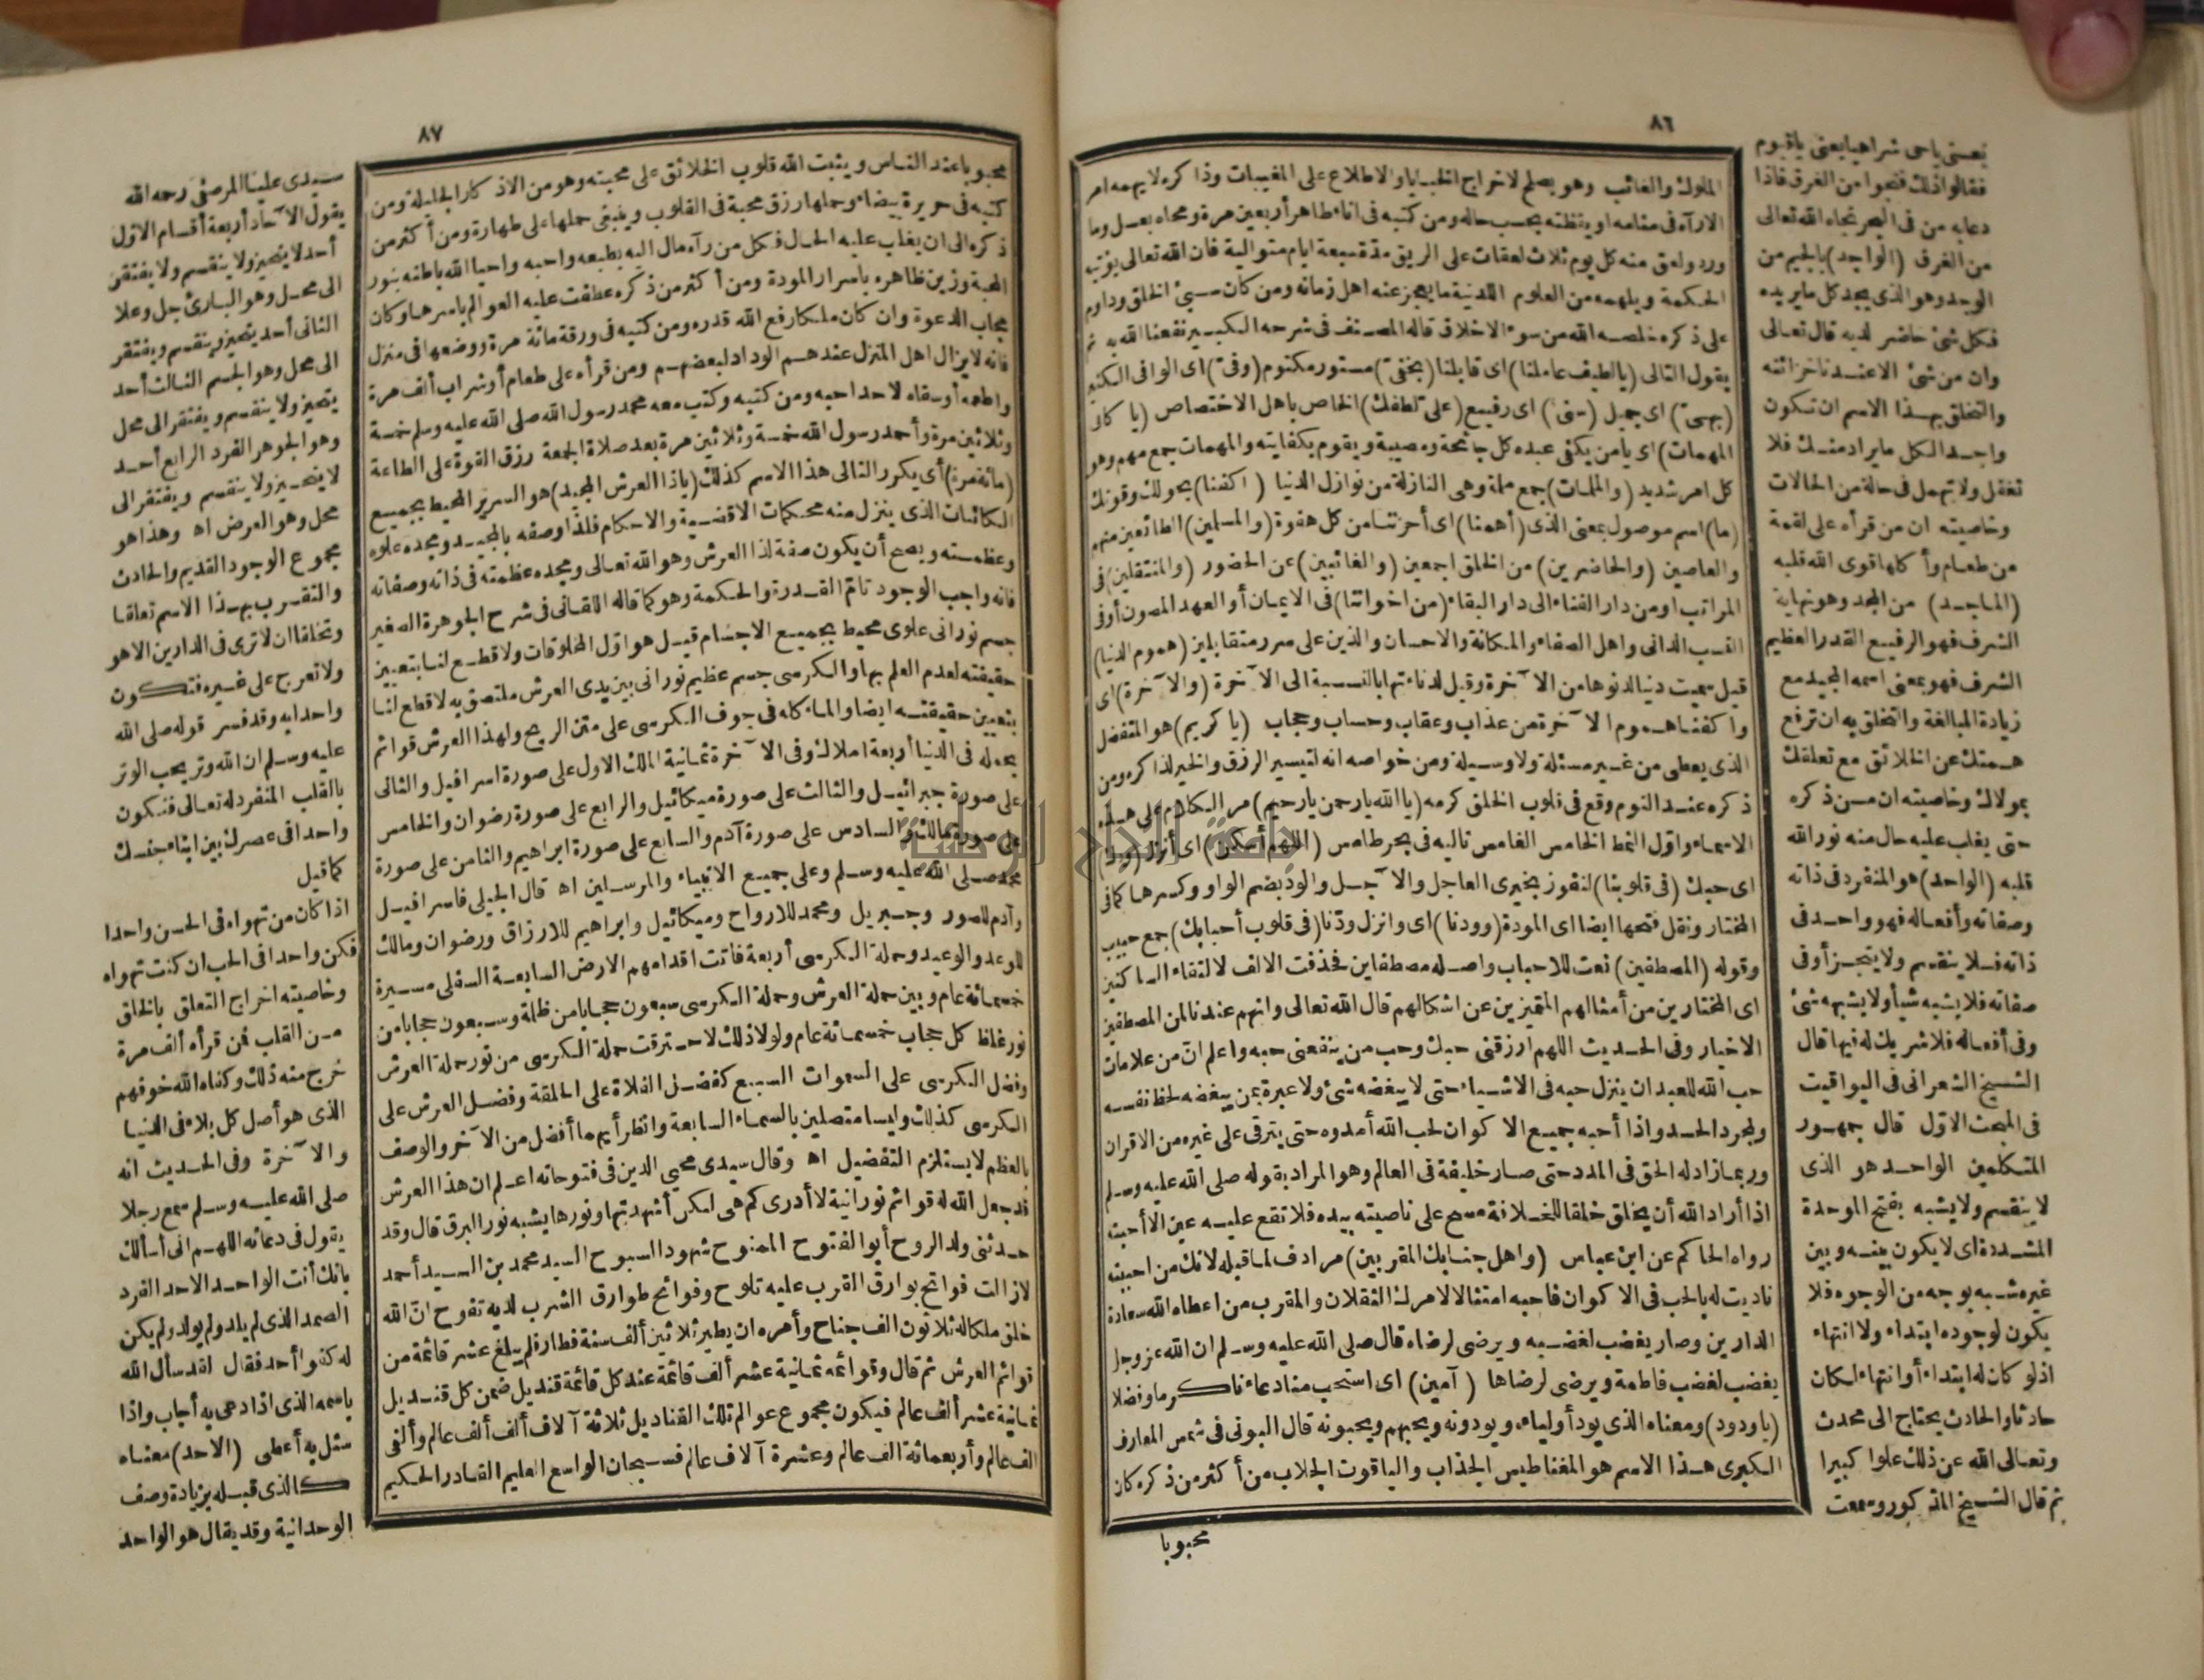 ٨٦
الملوك والغائب وهو يصلح لاخراج الخبايا والاطلاع على المغيبات وذاكره لا يهمه امر
الا رآه فى منامه او يقظته بحسب حاله ومن كتبه فى اناء طاهر أربعين مرة ومحاه بعسل وما
ورد ولعق منه كل يوم ثلاث لعقات على الريق مدة سبعة ايام متوالية فان الله تعالى يؤتيه
الحكمة ويلهمه من العلوم اللدنية ما يعجز عنه اهل زمانه ومن كان سيئ الخلق وداوم
على ذكره خلصه الله من سوء الاخلاق قاله المصنف فى شرحه الكبير نفعنا الله به ثم
يقول التالى (يا لطيف عاملنا) اى قابلنا (بخفىّ) مستور مكتوم (وفىّ) اى الوافى الكثير
(بهىّ) اى جميل (سنىّ) اى رفيع (علىّ لطفك) الخاص باهل الاختصاص (يا كافى
المهمات) اى يا من يكفى عبده كل جائحة ومصيبة ويقوم بكفايته والمهمات جمع مهم وهو
كل امر شديد (والملمات) جمع ملمة وهى النازلة من نوازل الدنيا (اكفنا) بحولك وقوتك
(ما) اسم موصول بمعنى الذى (أهمنا) اى أحزننا من كل هفوة (والمسلمين) الطائعين منهم
والعاصين (والحاضرين) من الخلق اجمعين (والغائبين) عن الحضور (والمنتقلين) فى
المراتب او من دار الفناء الى دار البقاء (من اخواننا) فى الايمان أو العهد المصون أو فى
القرب الدانى واهل الصفاء والمكانة والاحسان والذين على سرر متقابلين (هموم الدنيا)
قيل سميت دنيا لدنوها من الآخرة وقيل لدناءتها بالنسبة الى الآخرة (والآخرة) اى
واكفنا هموم الآخرة من عذاب وعقاب وحساب وحجاب (يا كريم) هو المتفضل
الذى يعطى من غير مسئلة ولا وسيلة ومن خواصه انه لتيسير الرزق والخير لذاكره ومن
ذكره عند النوم وقع فى قلوب الخلق كرمه (يا الله يا رحمن يا رحيم) مر الكلام على هذه
الاسماء واول النمط الخامس الغامس تاليه فى بحر طامس (اللهم أسكن) اى أنزل (ودّك)
اى حبك (فى قلوبنا) لنفوز بخيرى العاجل والآجل والودّ بضم الواو وكسرها كما فى
المختار ونقل فتحها ايضا اى المودة (وودنا) اى وانزل ودّنا (فى قلوب أحبابك) جمع حبيب
وقوله (المصطفين) نعت للاحباب واصله مصطفاين فحذفت الالف لالتقاء الساكنين
اى المختارين من أمثالهم المتميزين عن اشكالهم قال الله تعالى وانهم عندنا لمن المصطفين
الاخيار وفى الحديث اللهم ارزقنى حبك وحب من ينفعنى حبه واعلم انّ من علامات
حب الله للعبد ان ينزل حبه فى الاشياء حتى لا يبغضه شئ ولا عبرة بمن يبغضه لحظ نفسه
ولمجرد الحسد واذا أحبه جميع الاكوان لحب الله أمدوه حتى يترقى على غيره من الاقران
وربما زاد له الحق فى المدد حتى صار خليفة فى العالم وهو المراد بقوله صلى الله عليه وسلم
اذا أراد الله أن يخلق خلقا للخلافة مسح على ناصيته بيده فلا تقع عليه عين الا أحبته
رواه الحاكم عن ابن عباس (واهل جنابك المقربين) مرادف لما قبله لانك من احببته
ناديت له بالحب فى الاكوان فاحبه امتثالا لامرك الثقلان والمقرب من اعطاه الله سعادة
الدارين وصار يغضب لغضبه ويرضى لرضاه قال صلى الله عليه وسلم ان الله عز وجل
يغضب لغضب فاطمة ويرضى لرضاها (آمين) اى استجب منا دعاءنا كرما وفضلا
(يا ودود) ومعناه الذى يود أولياءه ويودونه ويحبهم ويحبونه قال البونى فى شمس المعارف
الكبرى هذا الاسم هو المغناطيس الجذاب والياقوت الجلاب من أكثر من ذكره كان
محبوبا
يعنى يا حى شراهيا يعنى يا قيوم
فقالوا ذلك فنجوا من الغرق فاذا
دعا به من فى البحر نجاه الله تعالى
من الغرق (الواجد) بالجيم من
الوجد وهو الذى يجد كل ما يريده
فكل شئ حاضر لديه قال تعالى
وان من شئ الا عندنا خزائنه
والتخلق بهذا الاسم ان تكون
واجد الكل ما يراد منك فلا
تغفل ولا تهمل فى حالة من الحالات
وخاصيته ان من قرأه على لقمة
من طعام وأكلها قوى الله قلبه
(الماجد) من المجد وهو نهاية
الشرف فهو الرفيع القدر العظيم
الشرف فهو بمعنى اسمه المجيد مع
زيادة المبالغة والتخلق به ان ترفع
همتك عن الخلائق مع تعلقك
بمولاك وخاصيته ان من ذكره
حتى يغلب عليه حال منه نور الله
قلبه (الواحد) هو المنفرد فى ذاته
وصفاته وأفعاله فهو واحد فى
ذاته فلا ينقسم ولا يتجزأ وفى
صفاته فلا يشبه شيأ ولا يشبهه شئ
وفى أفعاله فلا شريك له فيها قال
الشيخ الشعرانى فى اليواقيت
فى المبحث الاول قال جمهور
المتكلمين الواحد هو الذى
لا ينقسم ولا يشبه بفتح الموحدة
المشددة اى لا يكون بينه وبين
غيره شبه بوجه من الوجوه فلا
يكون لوجوده ابتداء ولا انتهاء
اذ لو كان له ابتداء أو انتهاء لكان
حادثا والحادث يحتاج الى محدث
وتعالى الله عن ذلك علوا كبيرا
ثم قال الشيخ المذكور وسمعت
٨٧
محبوبا عند الناس ويثبت الله قلوب الخلائق على محبته وهو من الاذكار الجليلة ومن
كتبه فى حريرة بيضاء وحملها رزق محبة فى القلوب وينبغى حملها على طهارة ومن أكثر من
ذكره الى ان يغلب عليه الحال فكل من رآه مال اليه بطبعه واحبه واحيا الله باطنه بنور
المحبة وزين ظاهره باسرار المودة ومن أكثر من ذكره عطفت عليه العوالم باسرها وكان
مجاب الدعوة وان كان ملكا رفع الله قدره ومن كتبه فى ورقة مائة مرة ووضعها فى منزل
فانه لا يزال اهل المنزل عندهم الوداد لبعضهم ومن قرأه على طعام أو شراب ألف مرة
واطعمه أو سقاه لاحد احبه ومن كتبه وكتب معه محمد رسول الله صلى الله عليه وسلم خمسة
وثلاثين مرة وأحمد رسول الله خمسة وثلاثين مرة بعد صلاة الجمعة رزق القوة على الطاعة
(مائة مرة) أى يكرر التالى هذا الاسم كذلك (يا ذا العرش المجيد) هو السرير المحيط بجميع
الكائنات الذى ينزل منه محكمات الاقضية والاحكام فلذا وصفه بالمجيد ومجده علوه
وعظمته ويصح أن يكون صفة لذا العرش وهو الله تعالى ومجده عظمته فى ذاته وصفاته
فانه واجب الوجود تام القدرة والحكمة وهو كما قاله اللقانى فى شرح الجوهرة الصغير
جسم نورانى علوى محيط بجميع الاجسام قيل هو اول المخلوقات ولا قطع لنا بتعيين
حقيقته لعدم العلم بها والكرسى جسم عظيم نورانى بين يدى العرش ملتصق به لا قطع لنا
بتعيين حقيقته ايضا والماء كله فى جوف الكرسى على متن الريح ولهذا العرش قوائم
يحمله فى الدنيا أربعة املاك وفى الآخرة ثمانية الملك الاول على صورة اسرافيل والثانى
على صورة جبرائيل والثالث على صورة ميكائيل والرابع على صورة رضوان والخامس
على صورة مالك والسادس على صورة آدم والسابع على صورة ابراهيم والثامن على صورة
محمد صلى الله عليه وسلم وعلى جميع الانبياء والمرسلين اه قال الجيلى فاسرافيل
وآدم للصور وجبريل ومحمد للارواح وميكائيل وابراهيم للارزاق ورضوان ومالك
للوعد والوعيد وحملة الكرسى أربعة فاتت اقدامهم الارض السابعة السفلى مسيرة
خمسمائة عام وبين حملة العرش وحملة الكرسى سبعون حجابا من ظلمة وسبعون حجابا من
نور غلظ كل حجاب خمسمائة عام ولولا ذلك لاحترقت حملة الكرسى من نور حملة العرش
وفضل الكرسى على السموات السبع كفضل الفلاة على الحلقة وفضل العرش على
الكرسى كذلك وليسا متصلين بالسماء السابعة وانظر أيهما أفضل من الآخر والوصف
بالعظم لا يستلزم التفضيل اه وقال سيدى محيى الدين فى فتوحاته اعلم ان هذا العرش
قد جعل الله له قوائم نورانية لا أدرى كم هى لكن أشهدتها ونورها يشبه نور البرق قال وقد
حدثنى ولد الروح أبو الفتوح الممنوح شهود السبوح السيد محمد بن السيد أحمد
لا زالت فواتح بوارق القرب عليه تلوح وفوائح طوارق الشرب لديه تفوح انّ الله
خلق ملكا له ثلاثون الف جناح وأمره ان يطير ثلاثين ألف سنة فطار فلم يبلغ عشر قائمة من
قوائم العرش ثم قال وقوائمه ثمانية عشر ألف قائمة عند كل قائمة قنديل ضمن كل قنديل
ثمانية عشر ألف عالم فيكون مجموع عوالم تلك القناديل ثلاثة آلاف ألف ألف عالم وألفى
الف عالم وأربعمائة الف عالم وعشرة آلاف عالم فسبحان الواسع العليم القادر الحكيم
سيدى عليا المرصفى رحمه الله
يقول الآحاد أربعة أقسام الاول
أحد لا يتحيز ولا ينقسم ولا يفتقر
الى محل وهو البارئ جل وعلا
الثانى أحد يتحيز وينقسم ويفتقر
الى محل وهو الجسم الثالث أحد
يتحيز ولا ينقسم ويفتقر الى محل
وهو الجوهر الفرد الرابع أحد
لا يتحيز ولا ينقسم ويفتقر الى
محل وهو العرض اه وهذا هو
مجموع الوجود القديم والحادث
والتقرب بهذا الاسم تعلقا
وتخلقا ان لا ترى فى الدارين الا هو
ولا تعرج على غيره فتكون
واحدا به وقد فسر قوله صلى الله
عليه وسلم ان الله وتر يحب الوتر
بالقلب المنفرد له تعالى فتكون
واحدا فى عصرك بين ابناء جنسك
كما قيل
اذا كان من تهواه فى الحسن واحدا
فكن واحدا فى الحب ان كنت تهواه
وخاصيته اخراج التعلق بالخلق
من القلب فمن قرأه ألف مرة
خرج منه ذلك وكفاه الله خوفهم
الذى هو أصل كل بلاء فى الدنيا
والآخرة وفى الحديث انه
صلى الله عليه وسلم سمع رجلا
يقول فى دعائه اللهم انى أسألك
بانك أنت الواحد الاحد الفرد
الصمد الذى لم يلد ولم يولد ولم يكن
له كفوا أحد فقال لقد سأل الله
باسمه الذى اذا دعى به أجاب واذا
سئل به أعطى (الاحد) معناه
كالذى قبله بزيادة وصف
الوحدانية وقد يقال هو الواحد